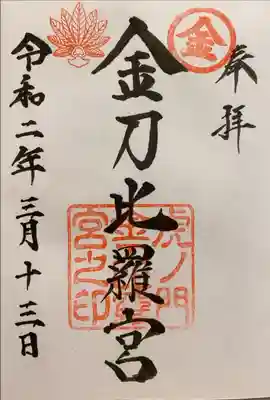 奉拝
金
金刀比羅宮
虎ノ門
金刀比羅
宮之印
令和二年三月十三日